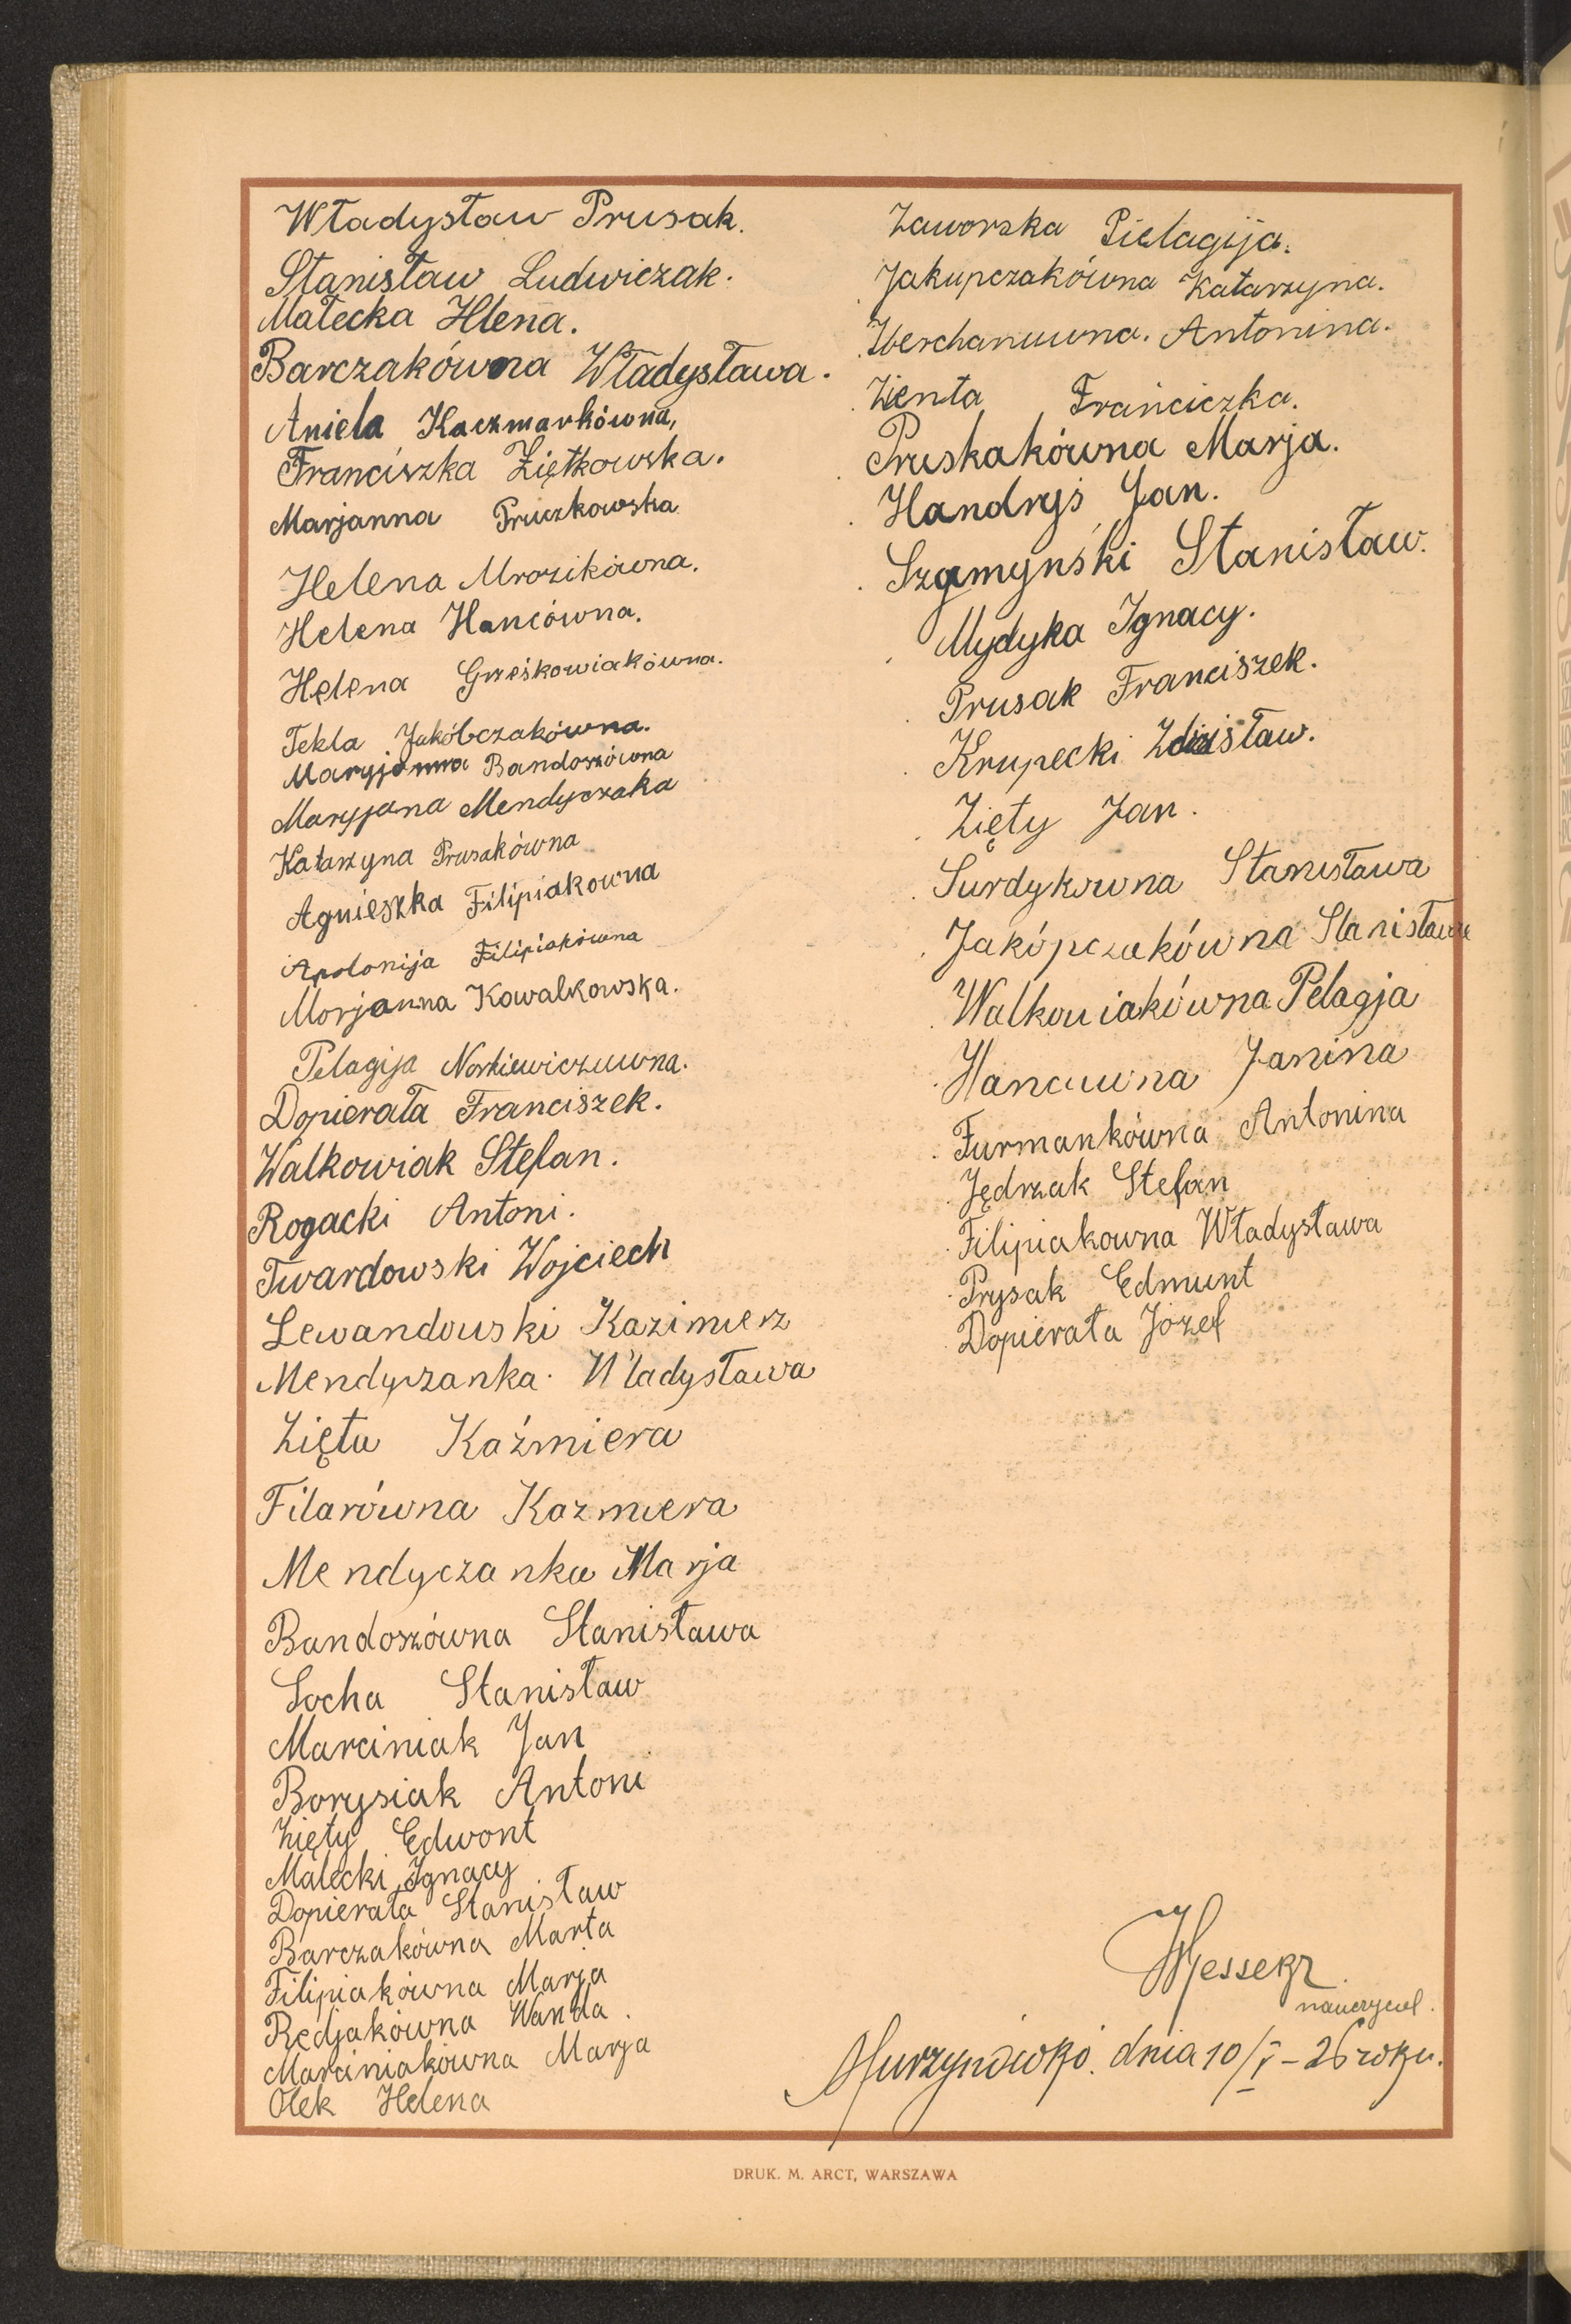 Władysław Prusak.
Stanisław Ludwiczak.
Małecka Hlena.
Barczakówna Władysława.
Aniela Kaczmarkówna,
Franciszka Ziętkowska.
Marjanna Pruczkowska
Helena Mrozikówna.
Helena Hancówna.
Helena Grześkowiakówna.
Tekla Jakóbczakówna.
Maryjanna Bandoszówna
Maryjana Mendyczaka
Katarzyna Prusakówna
Agnieszka Filipiakowna
Apolonija Filipiakówna
Marjanna Kowalkowska.
Pelagija Norkiewiczuwna.
Dopierała Franciszek.
Walkowiak Stefan.
Rogacki Antoni.
Twardowski Wojciech
Lewandowski Kazimierz
Mendyczanka. Władysława
Zięta Kaźmiera
Filarówna Kazmiera
Mendyczanka Marja
Bandoszówna Stanisława
Socha Stanisław
Marciniak Jan
Borysiak Antoni
Zięty Edwont
Małecki Ignacy
Dopierała Stanisław
Barczakówna Marta
Filipiakówna Marja
Redjakówna Wanda.
Marciniakówna Marja
Olek Helena
Zaworska Pielagija.
Jakupczakówna Katarzyna.
Antonina.
Zienta Franciczka.
Pruskakówna Marja.
Handryś Jan.
Szamyński Stanisław.
Mydyka Ignacy.
Prusak Franciszek.
Krupecki Zdzisław.
Zięty Jan.
Surdykówna Stanisława
Jakópczakówna Stanisława
Walkowiakówna Pelagja
Hancuwna Janina
Furmankówna Antonina
Jędrzak Stefan
Filipiakowna Władysława
Prysak Edmunt
Dopierała Józef
nauczyciel.
Murzynówko. dnia 10/V – 26 roku.
DRUK. M. ARCT, WARSZAWA